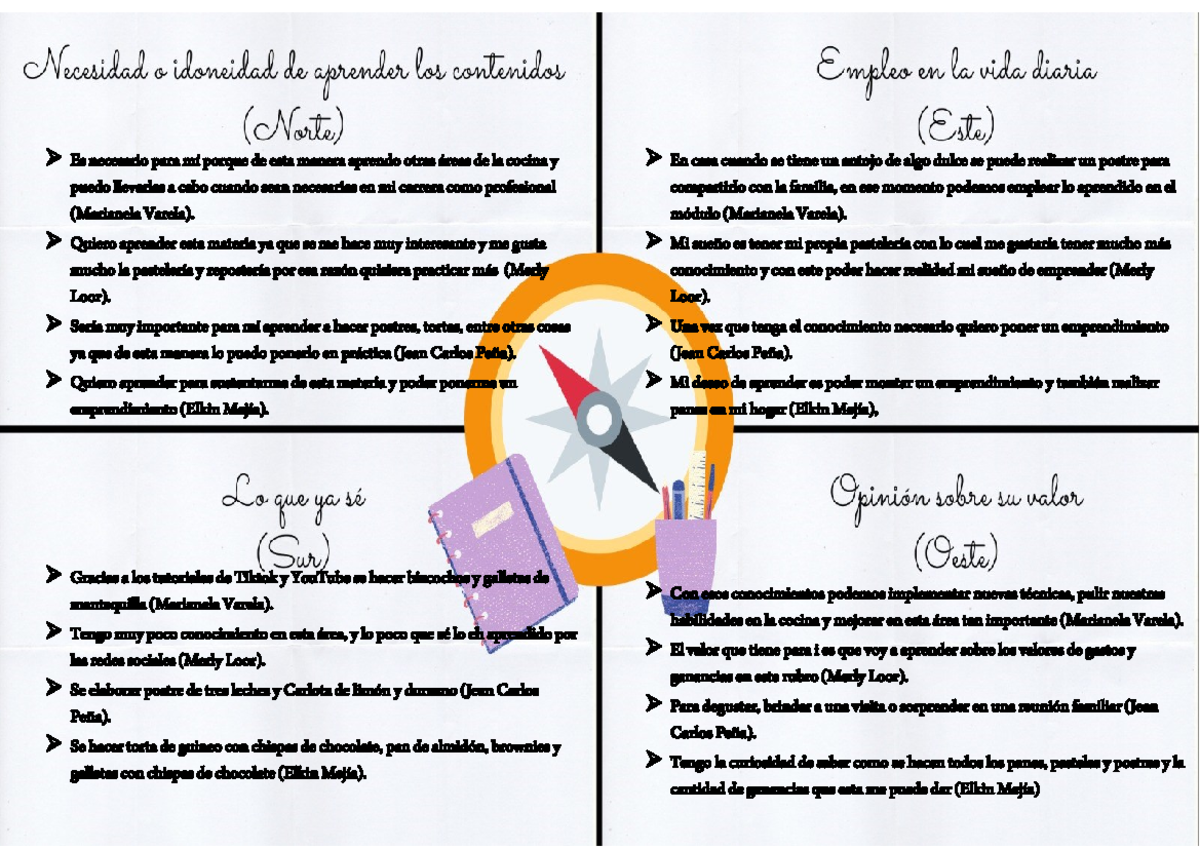 Necesidad o idoneidad de aprender los contenidos
(Norte)
➤ Es necesario para mí porque de esta manera aprendo otras áreas de la cocina y
puedo llevarlas a cabo cuando sean necesarias en mi carrera como profesional
(Marianela Varela).
➤ Quiero aprender esta materia ya que se me hace muy interesante y me gusta
mucho la pastelería y repostería por esa razón quisiera practicar más (Merly
Loor).
➤ Sería muy importante para mí aprender a hacer postres, tortas, entre otras cosas
ya que de esta manera lo puedo ponerlo en práctica (Jean Carlos Peña).
➤ Quiero aprender para sustentarme de esta materia y poder ponerme un
emprendimiento (Elkin Mejía).
Empleo en la vida diaria
(Este)
➤ En casa cuando se tiene un antojo de algo dulce se puede realizar un postre para
compartirlo con la familia, en ese momento podemos emplear lo aprendido en el
módulo (Marianela Varela).
➤ Mi sueño es tener mi propia pastelería con lo cual me gustaría tener mucho más
conocimiento y con este poder hacer realidad mi sueño de emprender (Merly
Loor).
➤ Una vez que tenga el conocimiento necesario quiero poner un emprendimiento
(Jean Carlos Peña).
➤ Mi deseo de aprender es poder montar un emprendimiento y también realizar
panes en mi hogar (Elkin Mejía),
Lo que ya sé
(Sur)
➤ Gracias a los tutoriales de Tiktok y YouTube se hacer bizcochos y galletas de
mantequilla (Marianela Varela).
➤ Tengo muy poco conocimiento en esta área, y lo poco que sé lo eh aprendido por
las redes sociales (Merly Loor).
➤ Se elaborar postre de tres leches y Carlota de limón y durazno (Jean Carlos
Peña).
➤ Se hacer torta de guineo con chispas de chocolate, pan de almidón, brownies y
galletas con chispas de chocolate (Elkin Mejía).
Opinión sobre su valor
(Oeste)
➤ Con esos conocimientos podemos implementar nuevas técnicas, pulir nuestras
habilidades en la cocina y mejorar en esta área tan importante (Marianela Varela).
➤ El valor que tiene para i es que voy a aprender sobre los valores de gastos y
ganancias en este rubro (Merly Loor).
➤ Para degustar, brindar a una visita o sorprender en una reunión familiar (Jean
Carlos Peña).
➤ Tengo la curiosidad de saber como se hacen todos los panes, pasteles y postres y la
cantidad de ganancias que esta me puede dar (Elkin Mejía)